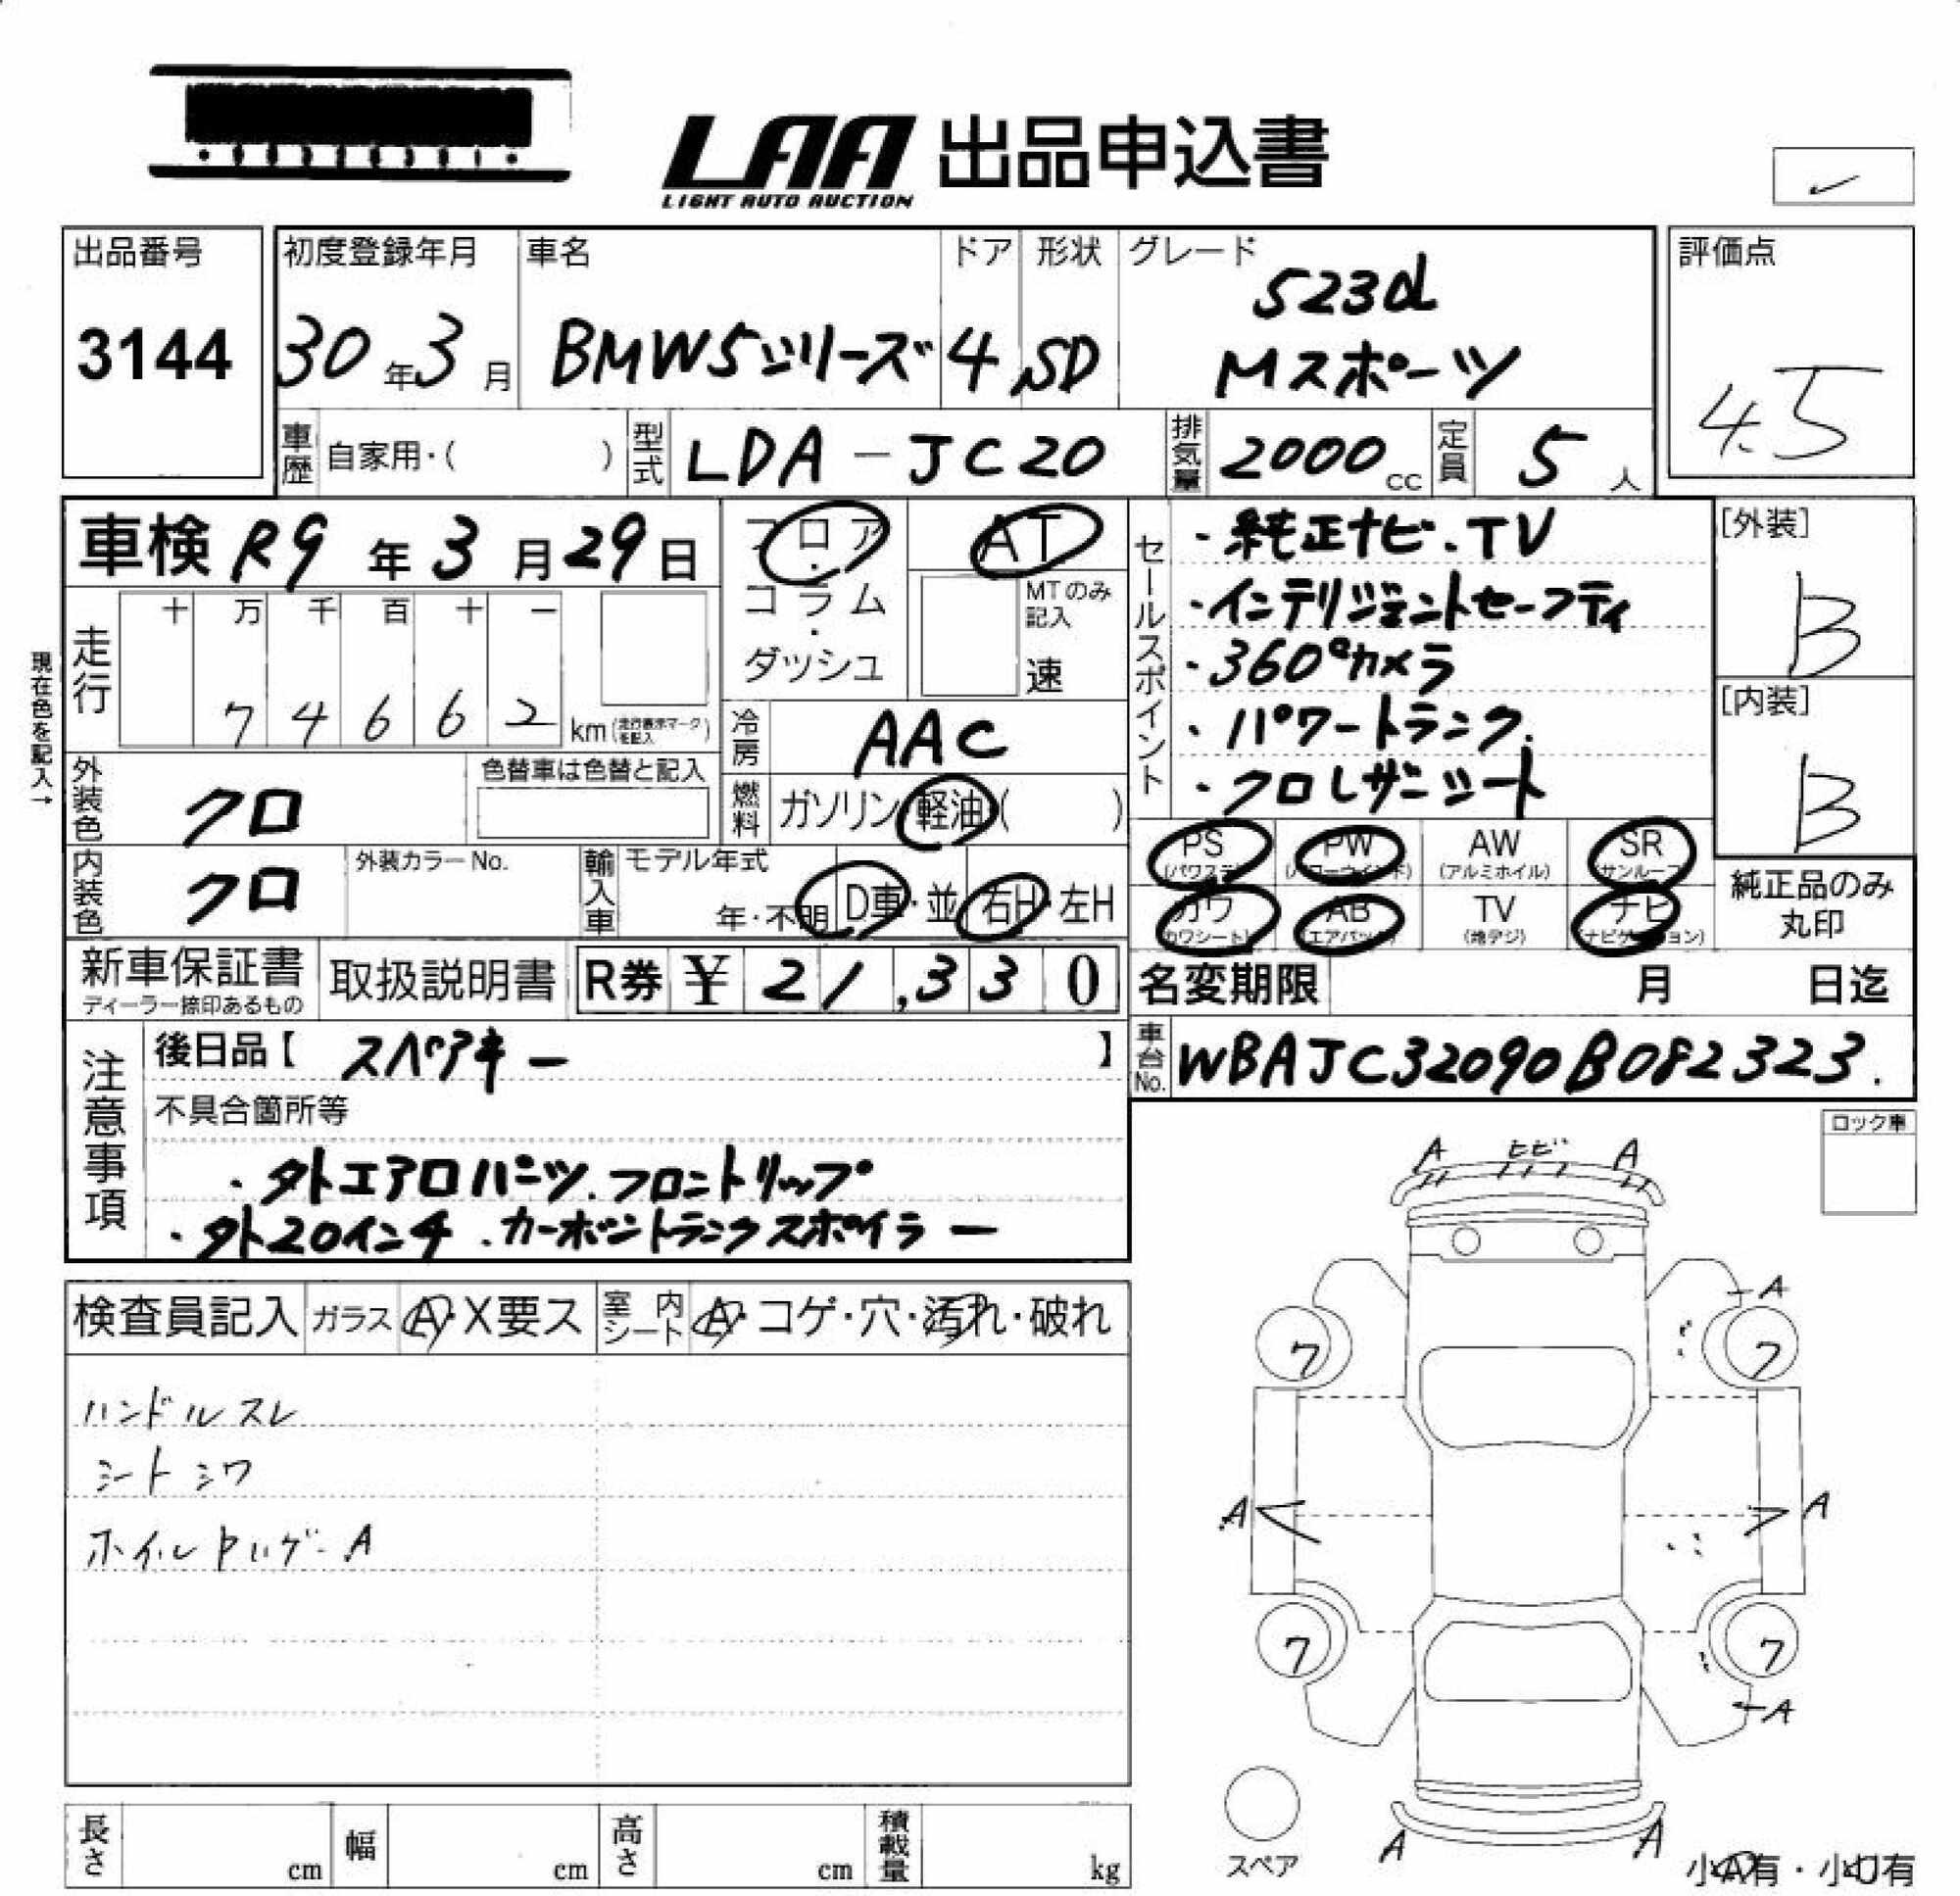 LAA 出品申込書
LIGHT AUTO AUCTION
出品番号
3144
初度登録年月
30年3月
車名
BMW5シリーズ
ドア
4
形状
SD
グレード
523d
Mスポーツ
評価点
4.5
車歴 自家用・( )
型式 LDA-JC20
排気量 2000cc
定員 5人
車検 R9年3月29日
フロア・コラム・ダッシュ
AT
MTのみ記入
速
セールスポイント
・純正ナビ.TV
・インテリジェントセーフティ
・360°カメラ
・パワートランク.
・クロレザーシート
[外装]
B
[内装]
B
現在色を記入→
走行
十 万 千 百 十 一
7 4 6 6 2
km(走行表示マークを記入)
冷房 AAC
外装色 クロ
色替車は色替と記入
燃料 ガソリン 軽油( )
内装色 クロ
外装カラーNo.
輸入車 モデル年式
年・不明 D車・並 右H・左H
PS (パワステ)
PW (パワーウインド)
AW (アルミホイル)
SR (サンルーフ)
カワ (カワシート)
AB (エアバック)
TV (地デジ)
ナビ (ナビゲーション)
純正品のみ
丸印
新車保証書
ディーラー捺印あるもの
取扱説明書
R券 ¥ 21,330
名変期限 月 日迄
車台No. WBAJC32090B082323.
注意事項
後日品【 スペアキー 】
不具合箇所等
・外エアロパーツ.フロントリップ
・外20インチ.カーボントランクスポイラー
ロック車
検査員記入
ガラス A・X要ス
室内シート A・コゲ・穴・汚れ・破れ
ハンドルスレ
シートシワ
A
A ヒビ A
A
7 7
A A
7 7
A
スペア
A A
小A有・小U有
長さ cm
幅 cm
高さ cm
積載量 kg